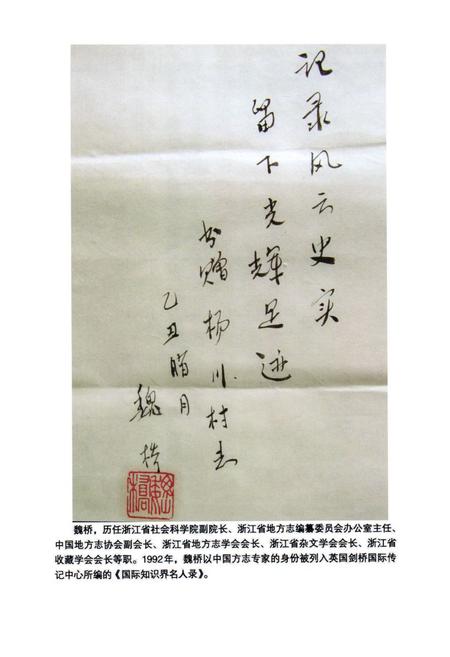 记录风云史实
留下光辉足迹
书赠杨川村志
乙丑腊月
魏桥
魏桥
魏桥，历任浙江省社会科学院副院长、浙江省地方志编纂委员会办公室主任、
中国地方志协会副会长、浙江省地方志学会会长、浙江省杂文学会会长、浙江省
收藏学会会长等职。1992年，魏桥以中国方志专家的身份被列入英国剑桥国际传
记中心所编的《国际知识界名人录》。